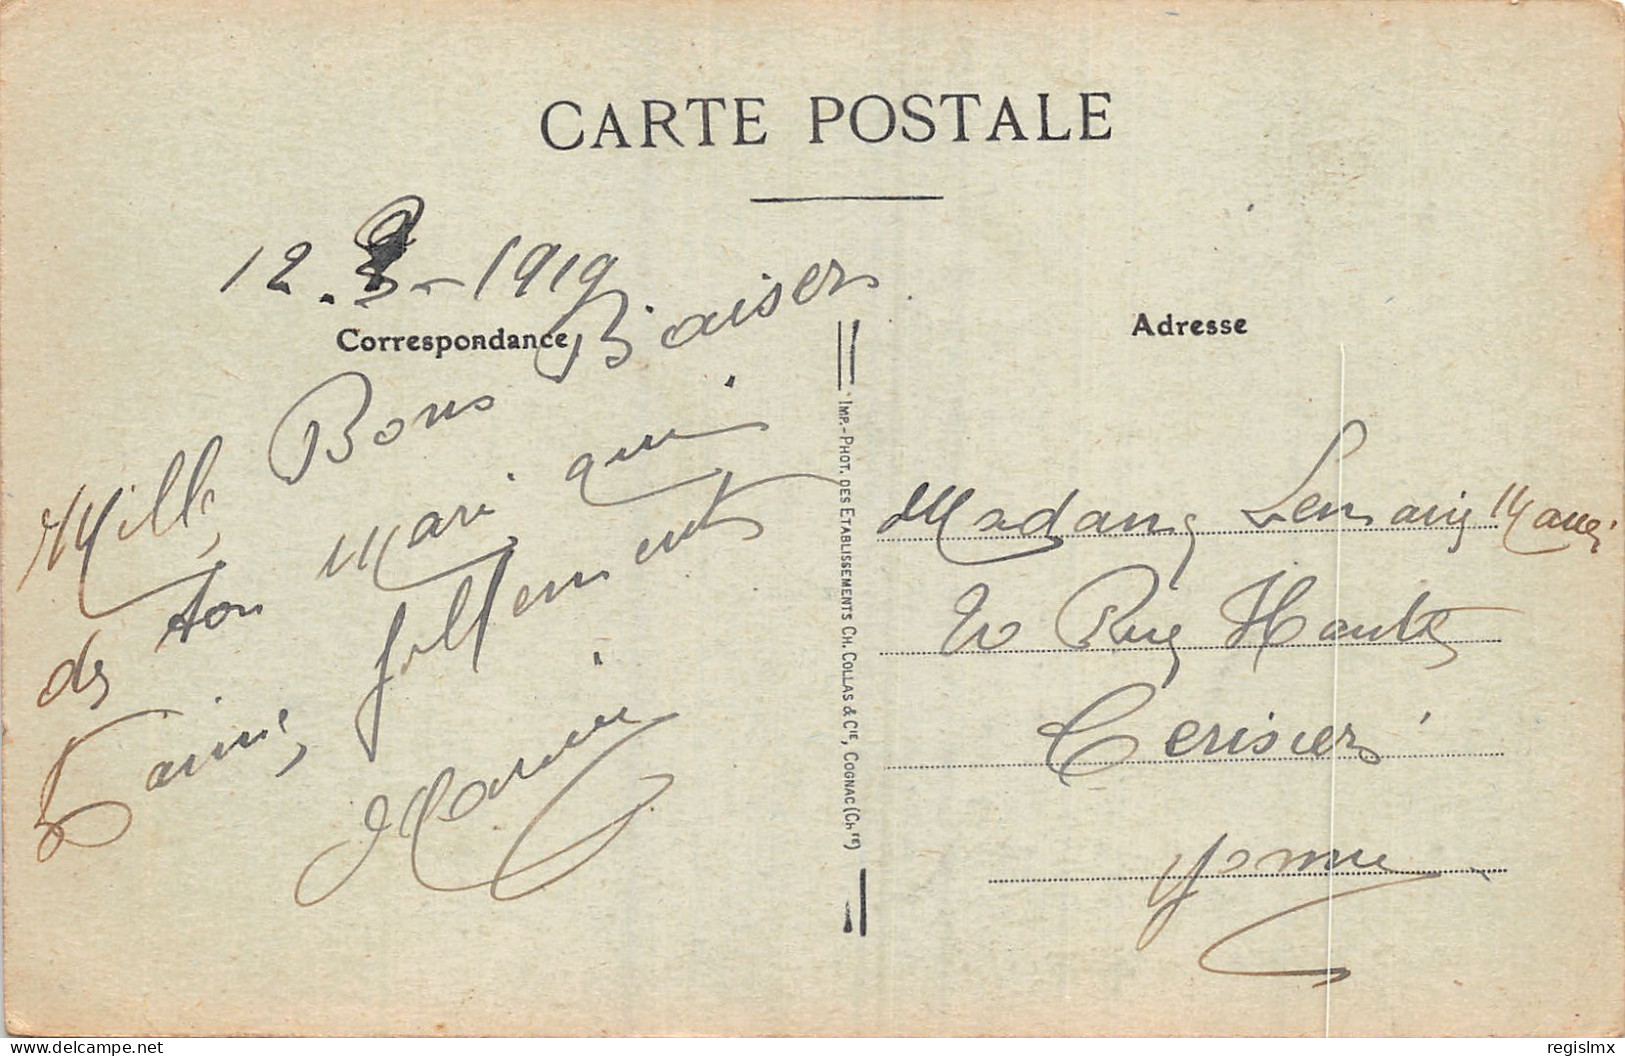 CARTE POSTALE
12. - 1919
Correspondance
Mille Bons Baisers
de ton mari qui
t'aime follement
Marius
IMP.-PHOT. DES ETABLISSEMENTS CH. COLLAS & CIE, COGNAC (Ch te)
Adresse
Madame Lemaire
20 Rue Haute
Cerisiers
Yonne
delcampe.net
regislmx